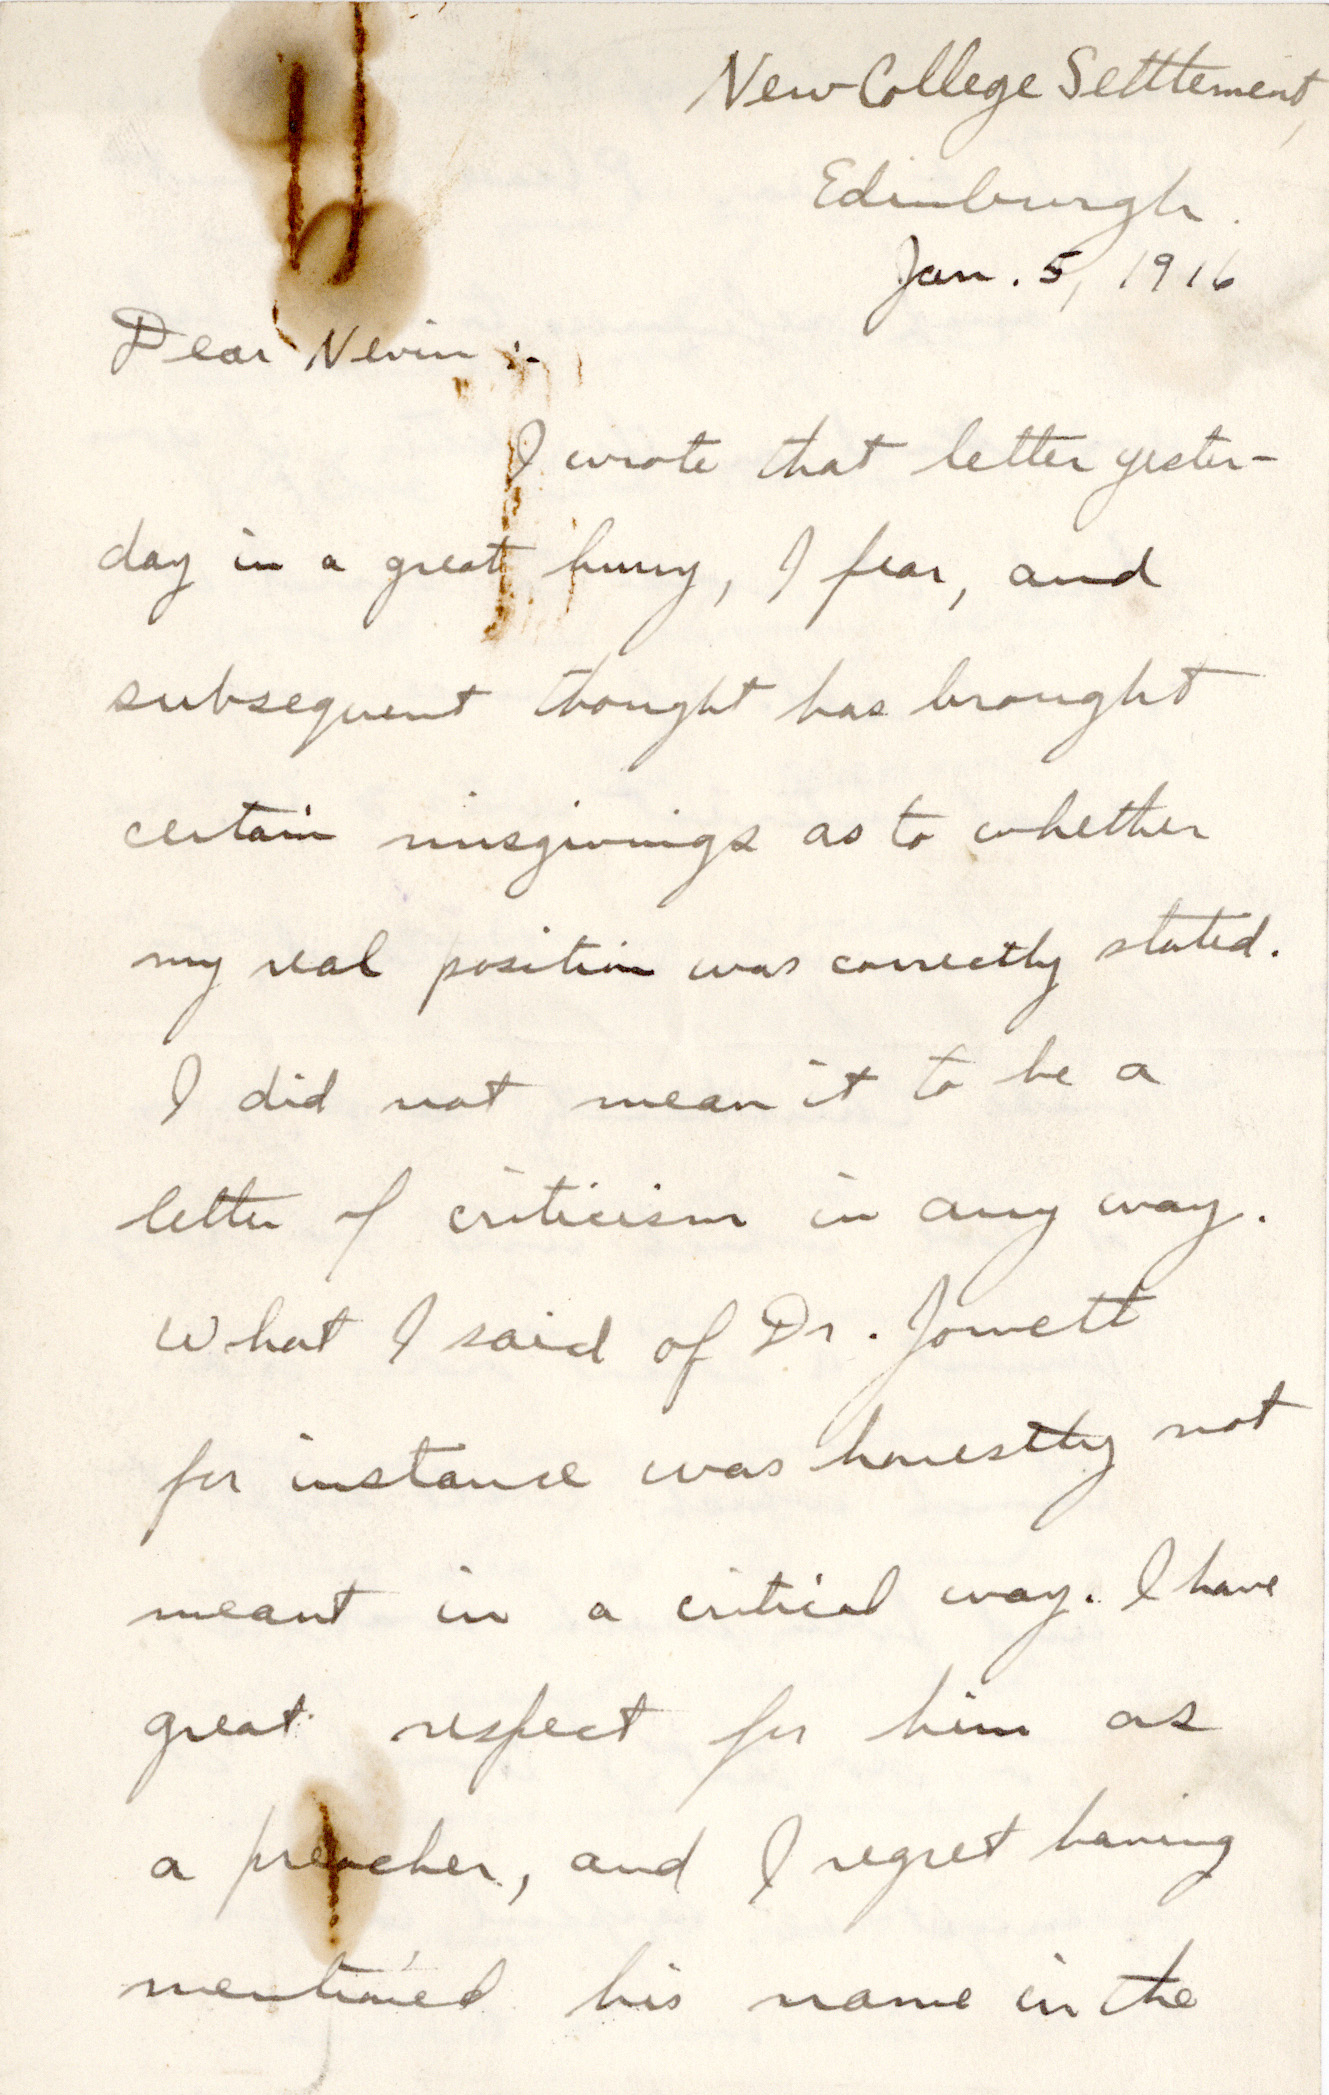 New College Settlement,
Edinburgh.
Jan. 5, 1916
Dear Nevin :-
I wrote that letter yester-
day in a great hurry, I fear, and
subsequent thought has brought
certain misgivings as to whether
my real position was correctly stated.
I did not mean it to be a
letter of criticism in any way.
What I said of Dr. Jowett
for instance was honestly not
meant in a critical way. I have
great respect for him as
a preacher, and I regret having
mentioned his name in the